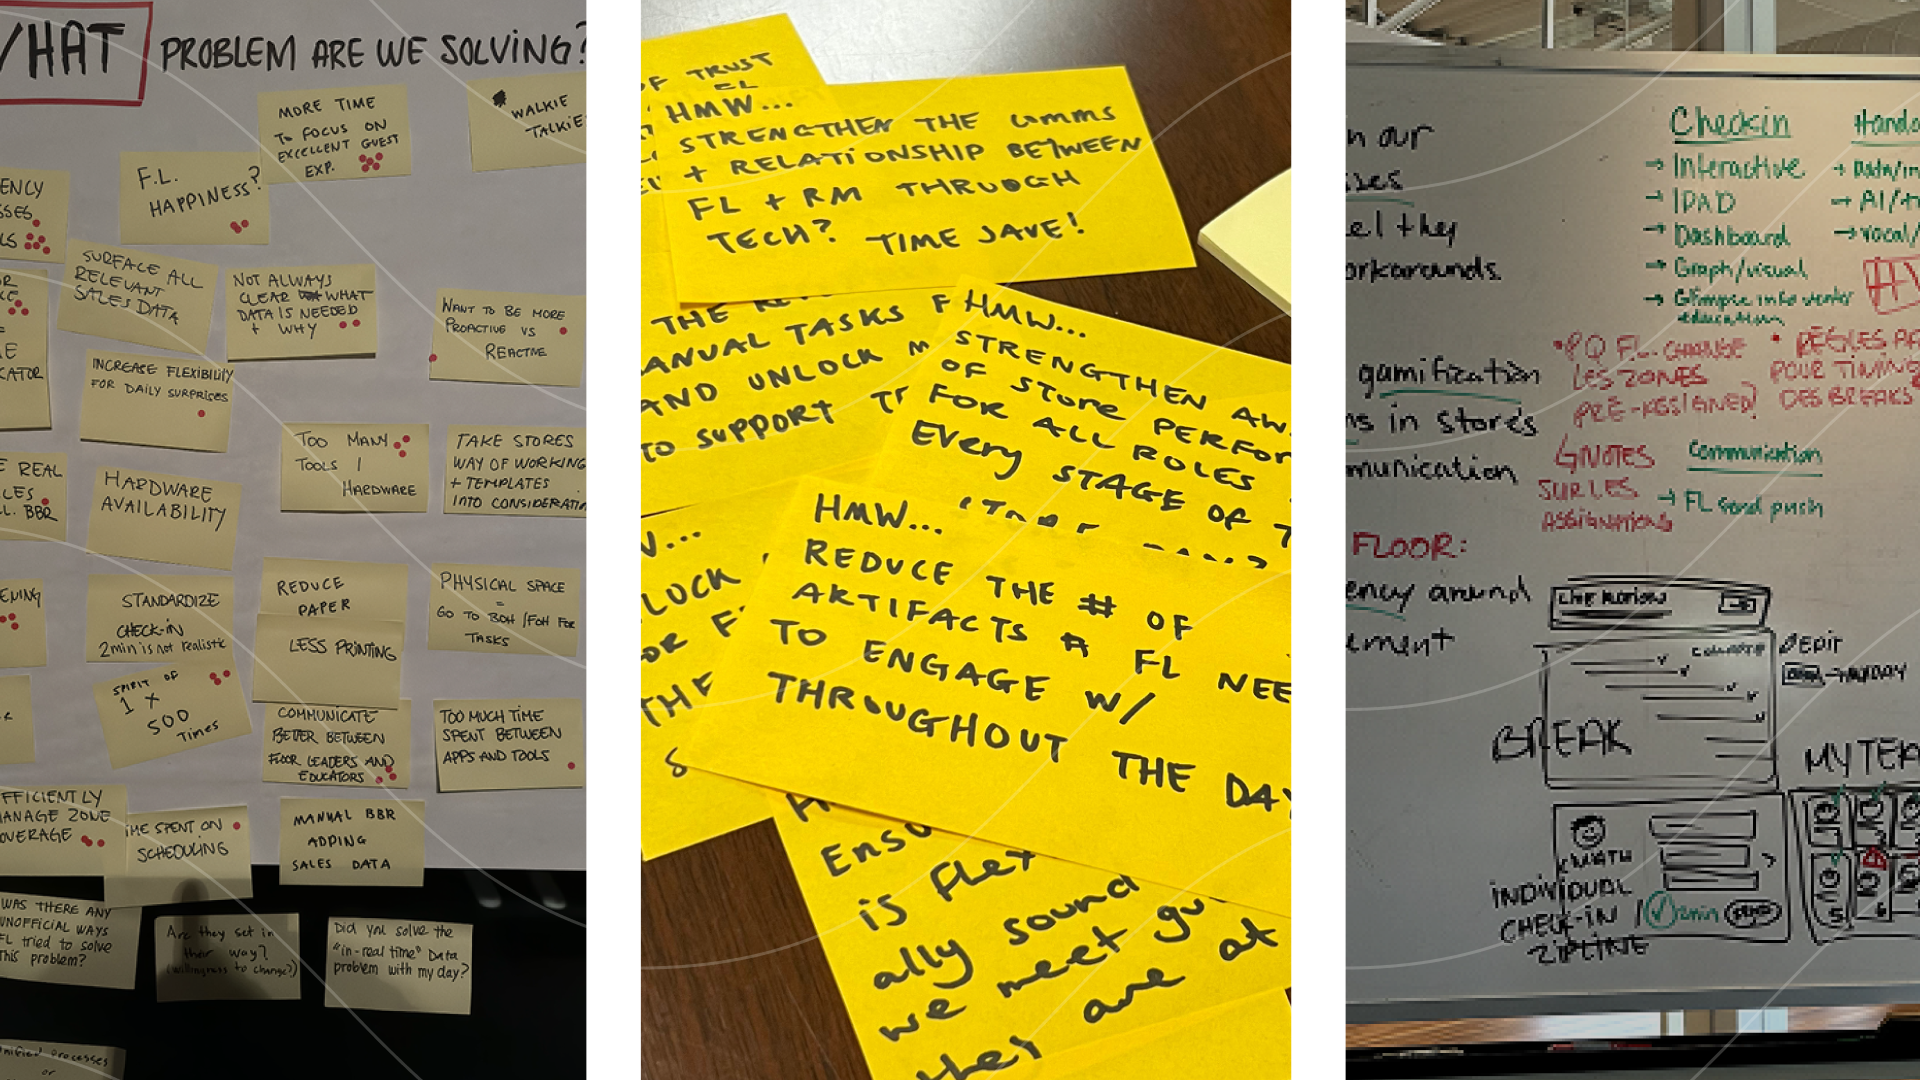 WHAT PROBLEM ARE WE SOLVING?
MORE TIME
TO FOCUS ON
EXCELLENT GUEST
EXP.
WALKIE
TALKIE
F.L.
HAPPINESS?
ENCY
SURFACE ALL
RELEVANT
SALES DATA
NOT ALWAYS
CLEAR WHAT
DATA IS NEEDED
+ WHY
WANT TO BE MORE
PROACTIVE VS
REACTIVE
INCREASE FLEXIBILITY
FOR DAILY SURPRISES
TOO MANY
TOOLS /
HARDWARE
TAKE STORES
WAY OF WORKING
+ TEMPLATES
INTO CONSIDERATION
REAL
BBR
HARDWARE
AVAILABILITY
STANDARDIZE
CHECK-IN
2min is not realistic
REDUCE
PAPER
LESS PRINTING
PHYSICAL SPACE
=
GO TO BOH / FOH FOR
TASKS
SPIRIT OF
1 x
500
Times
COMMUNICATE
BETTER BETWEEN
FLOOR LEADERS AND
EDUCATORS
TOO MUCH TIME
SPENT BETWEEN
APPS AND TOOLS
EFFICIENTLY
MANAGE ZONE
COVERAGE
TIME SPENT ON
SCHEDULING
MANUAL BBR
ADDING
SALES DATA
WAS THERE ANY
UNOFFICIAL WAYS
FL tried to solve
this problem?
Are they set in
their way?
(willingness to change?)
Did you solve the
"in-real time" Data
problem with my day?
processes
or
OF TRUST
HMW...
STRENGTHEN THE comms
+ RELATIONSHIP BETWEEN
FL + RM THROUGH
TECH? TIME SAVE!
MANUAL TASKS F
AND UNLOCK M
TO SUPPORT
HMW...
STRENGTHEN AW
OF STORE PERFOR
FOR ALL ROLES
EVERY STAGE OF T
HMW...
REDUCE THE # OF
ARTIFACTS A FL NEE
TO ENGAGE W/
THROUGHOUT THE DAY
LOCK
OR F
THE
S
Enso
is flex
ally sound
we meet gu
they are at
in our
el they
workarounds.
gamification
ns in stores
munication
FLOOR:
ency around
ement
Checkin
→ Interactive
→ IPAD
→ Dashboard
→ Graph/visual
→ Glimpse into
education
Hando
→ Data/in
→ AI/
→ vocal/
• PQ FL CHANGE
LES ZONES
PRE-ASSIGNED?
• RÈGLES
POUR TIMING
DES BREAKS
NOTES
SUR LES
ASSIGNATIONS
Communication
→ FL send push
EDIT
BREAK
MY TEA
INDIVIDUAL
CHECK-IN /
ZIPLINE
2min
5
6